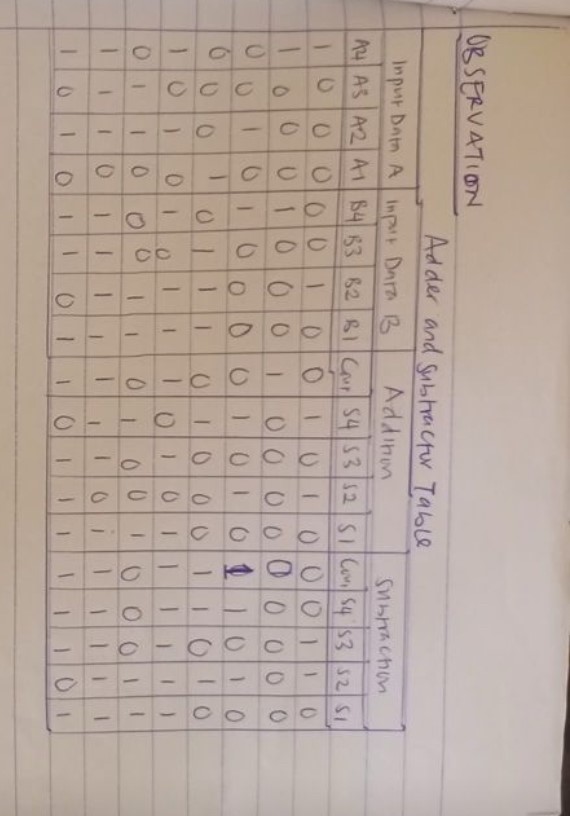 OBSERVATION
Adder and Subtractor Table
Input Data A Input Data B Addition Subtraction
A4 A3 A2 A1 B4 B3 B2 B1 Cout S4 S3 S2 S1 Cout S4 S3 S2 S1
1 0 0 0 0 0 1 0 0 1 0 1 0 0 0 1 1 0
1 0 0 0 1 0 0 0 1 0 0 0 0 0 0 0 0 0
0 0 1 0 1 0 0 0 0 1 0 1 0 1 1 0 1 0
0 0 0 1 0 1 1 1 0 1 0 0 0 1 1 0 1 0
1 0 1 0 1 0 1 1 1 0 1 0 1 1 1 1 1 1
0 1 1 0 0 0 1 1 0 1 0 0 1 0 0 0 1 1
1 1 1 0 1 1 1 1 1 1 1 0 1 1 1 1 1 1
1 0 1 0 1 1 0 1 1 0 1 1 1 1 1 1 0 1